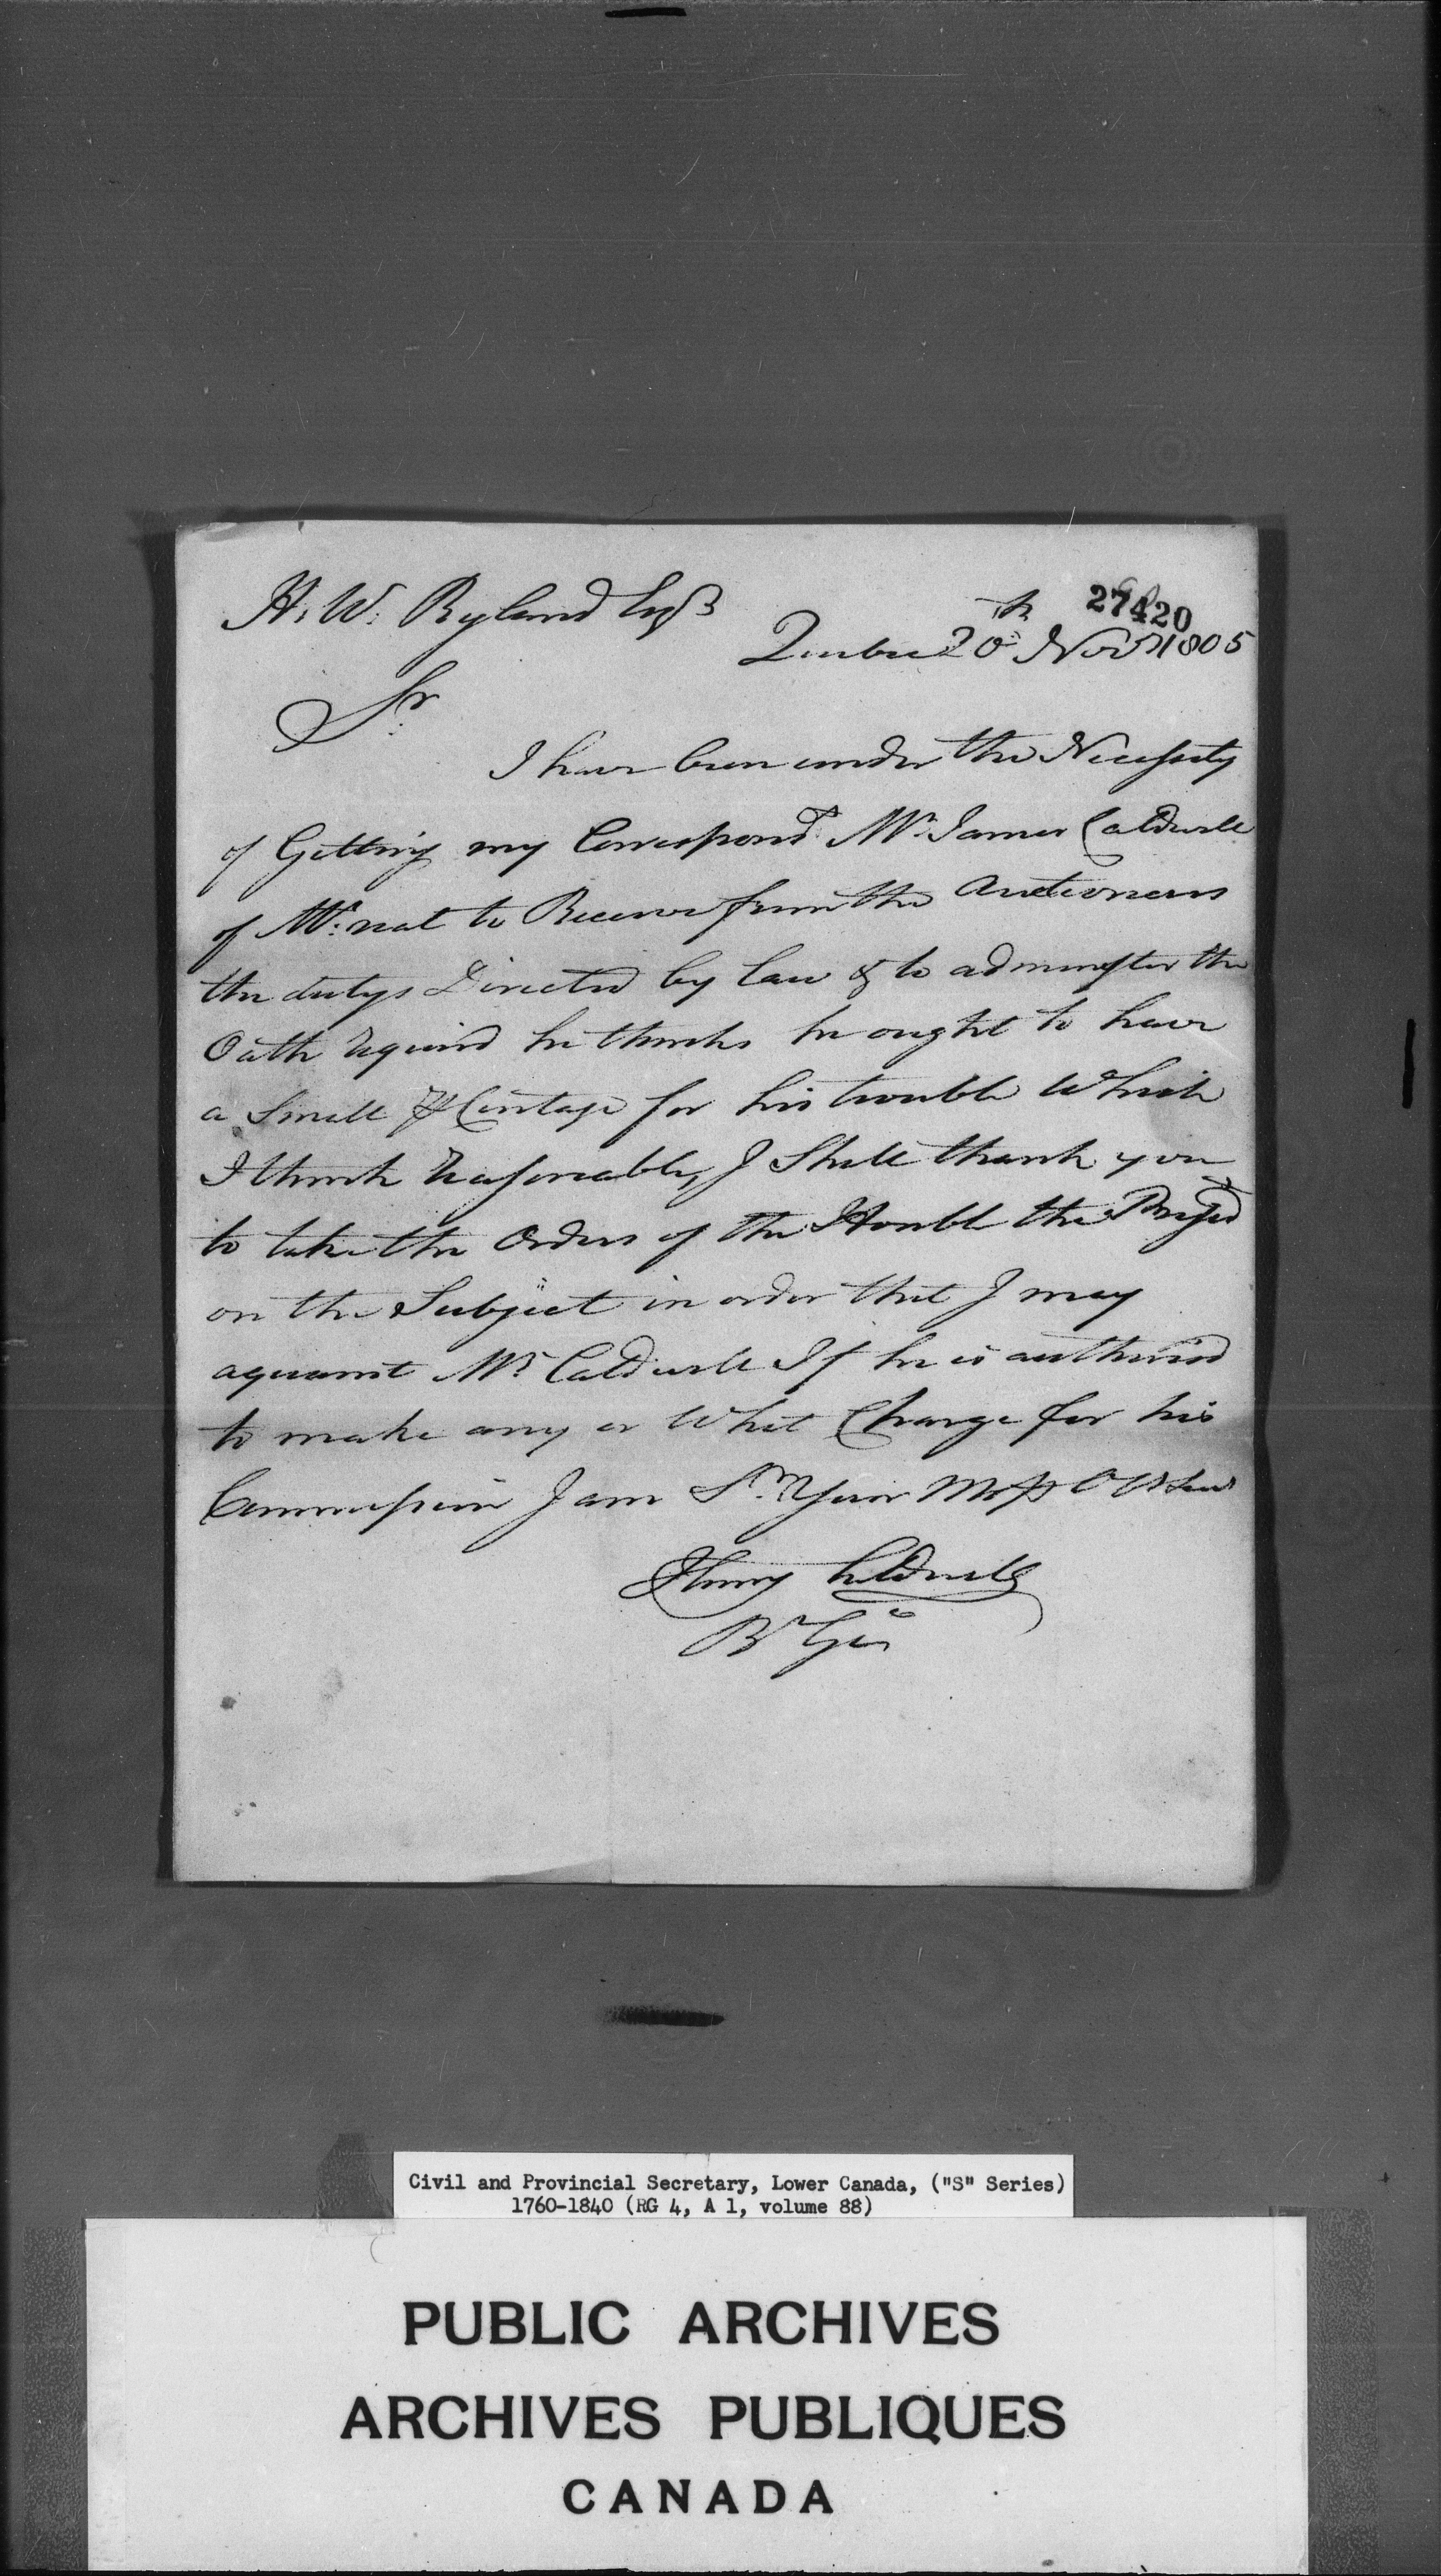 H. W. Ryland Esqr
27420
Quebec 20th Novr 1805
Sr.
I have been under the Necessity
of Getting my Correspond.t Mr. James Caldwell
of M: real to Receive from the Auctioneers
the dutys Directed by law & to administer the
Oath required he thinks he ought to have
a Small ⅌ Centage for his trouble Which
I think reasonable, I Shall thank you
to take the Orders of the Honble the Presidt
on the Subject in order that I may
aquaint Mr. Caldwell If he is authorised
to make any or What Charge for his
Commission I am Sr. Your Mo
Henry Caldwell
Rr Gen
Civil and Provincial Secretary, Lower Canada, ("S" Series)
1760-1840 (RG 4, A 1, volume 88)
PUBLIC ARCHIVES
ARCHIVES PUBLIQUES
CANADA